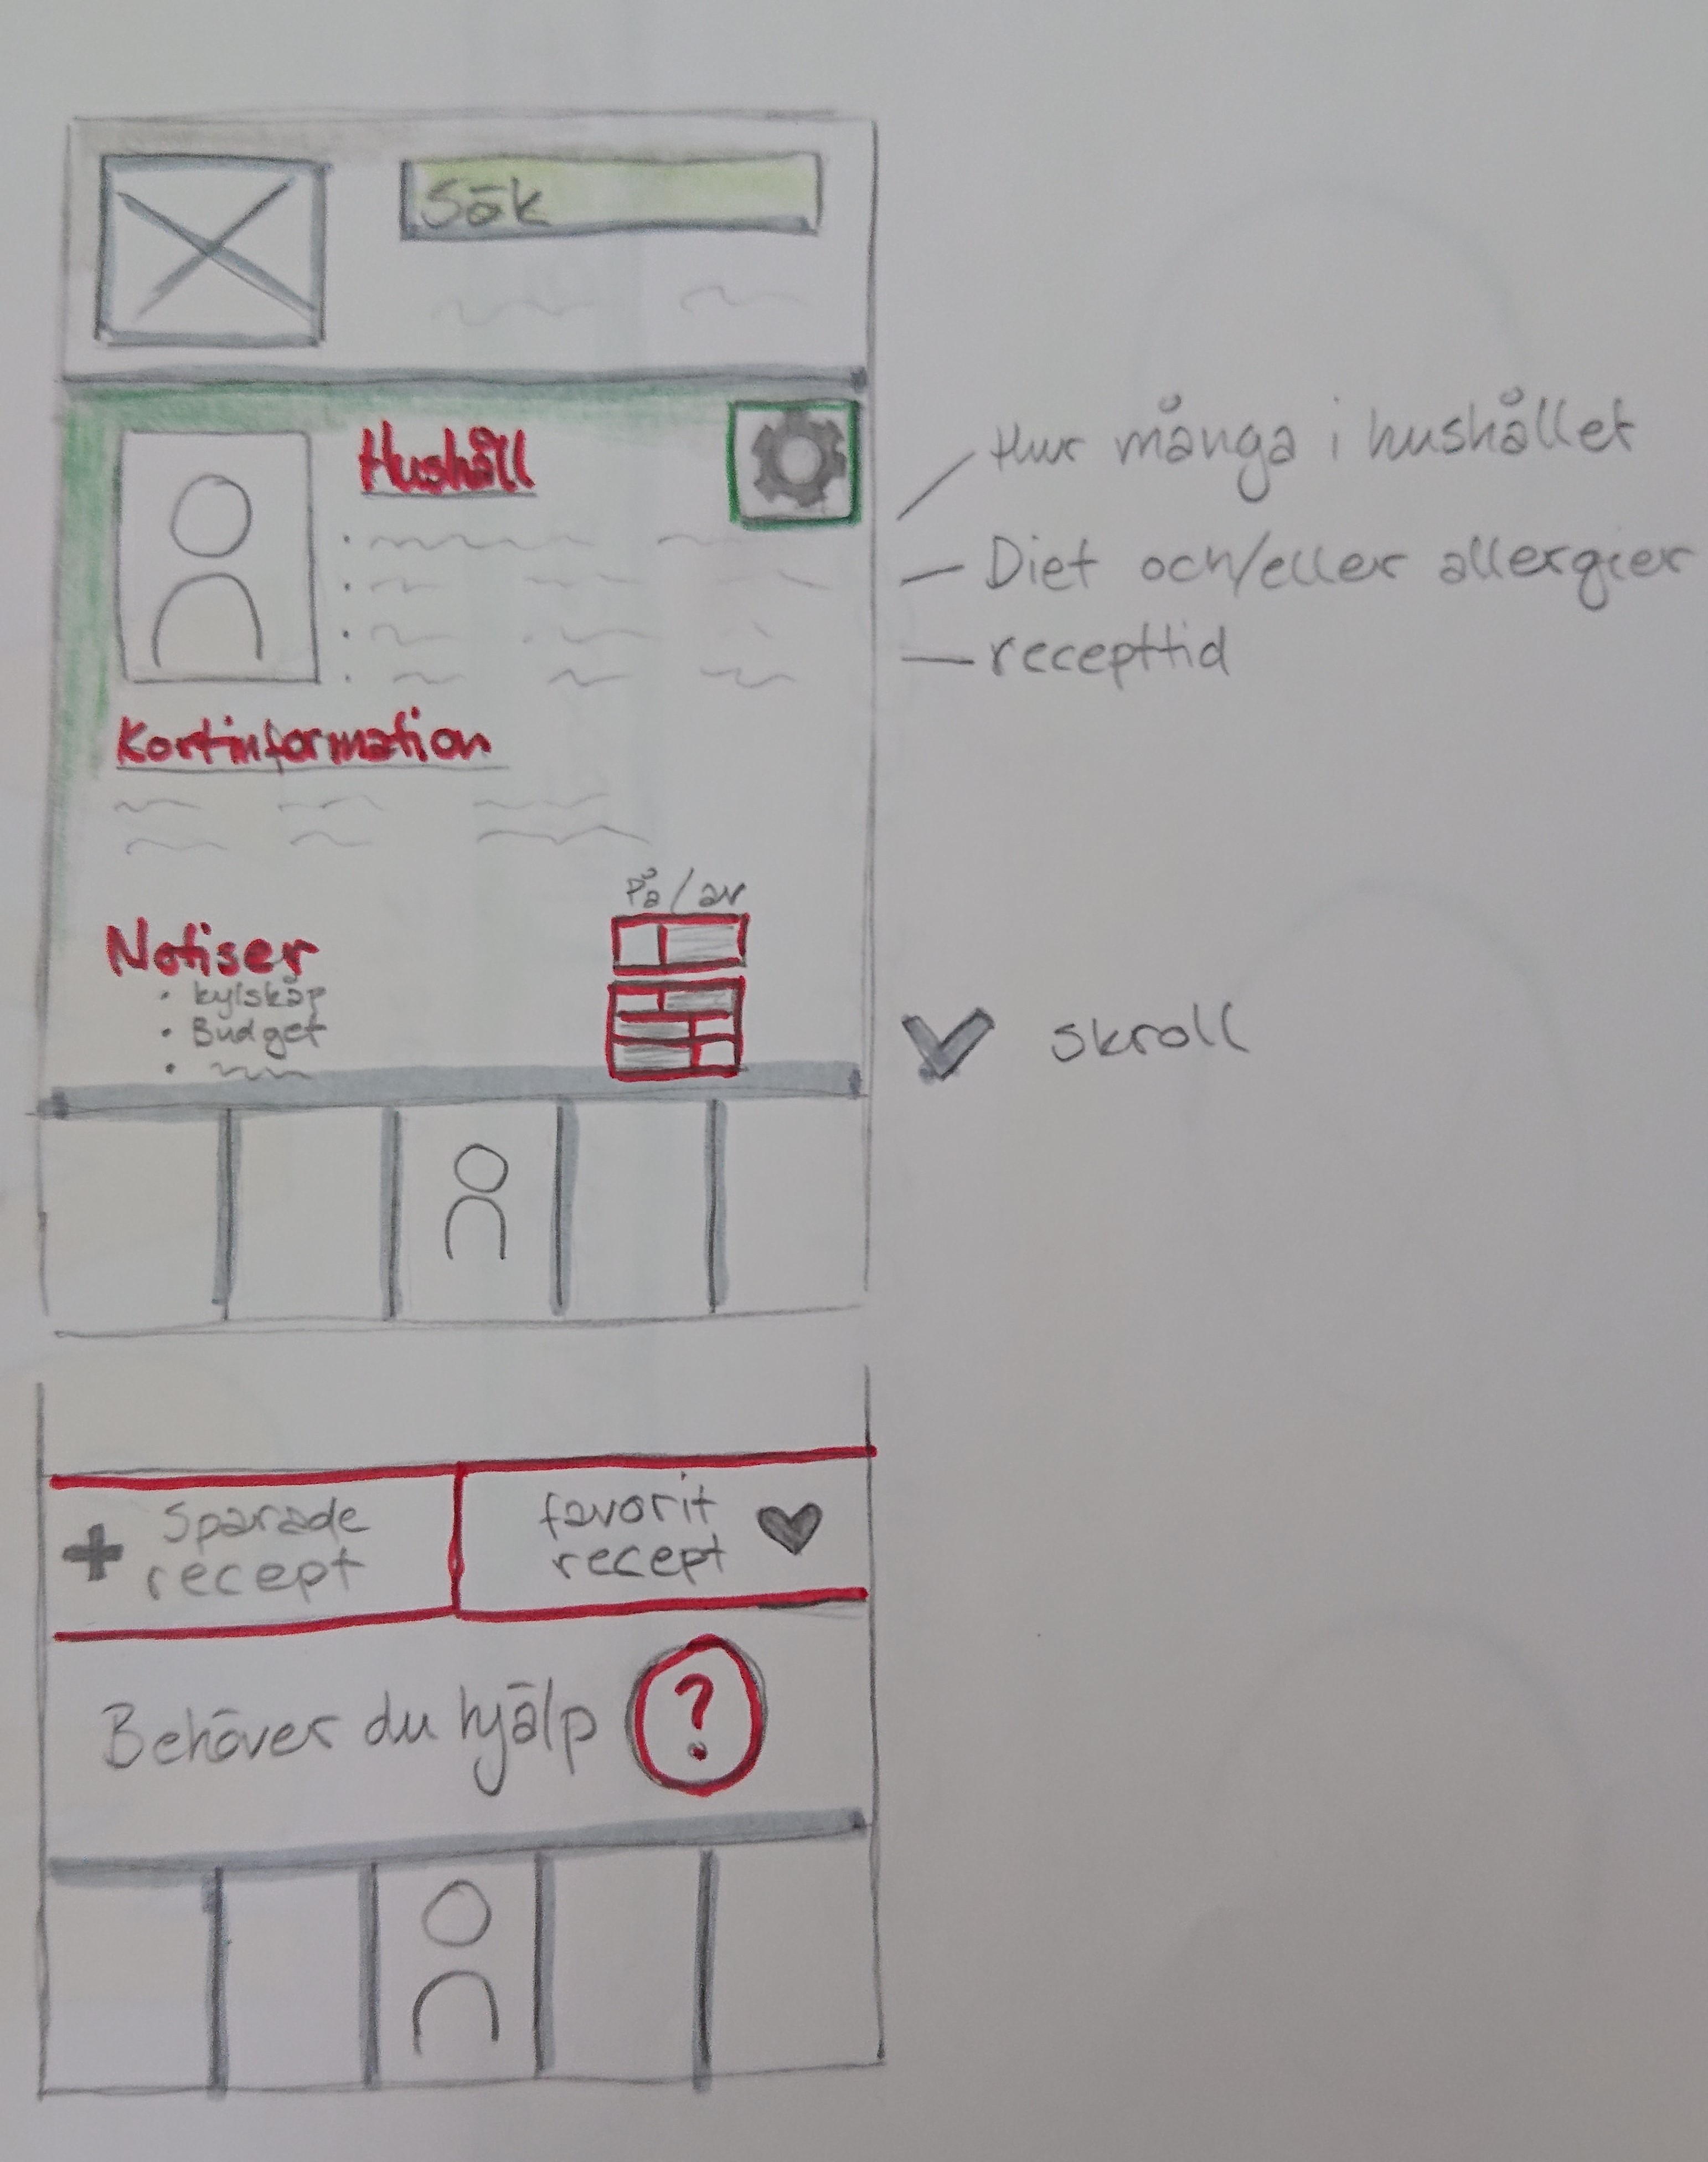 Sök
Hushåll
Hur många i hushållet
Diet och/eller allergier
recepttid
Kortinformation
På/av
Notiser
• kylskåp
• Budget
skroll
Sparade
recept
favorit
recept
Behöver du hjälp ?